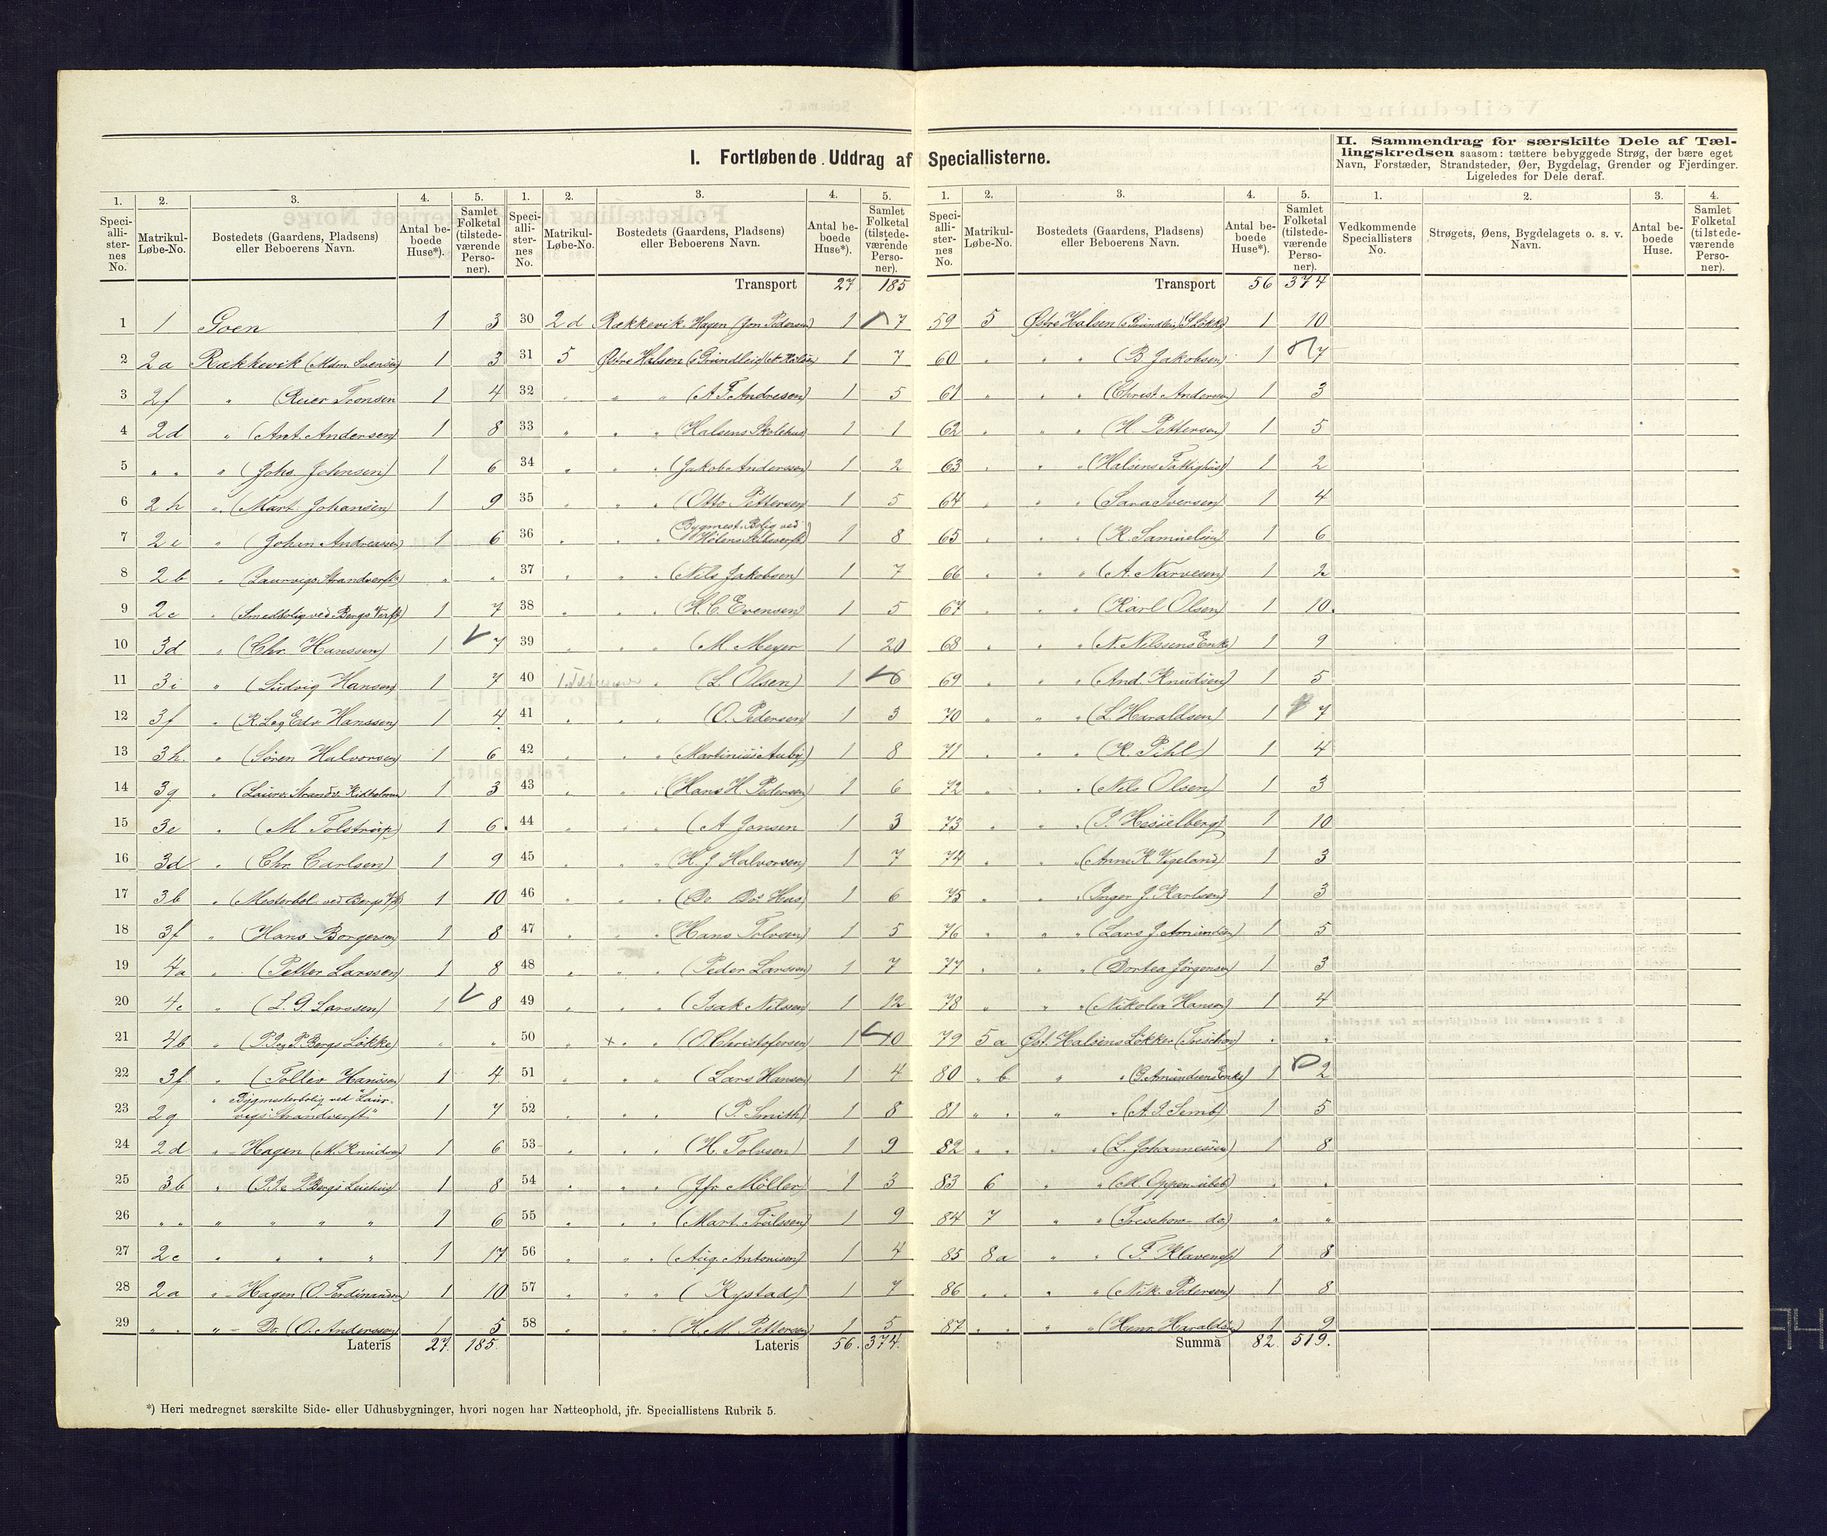 I. Fortløbende Uddrag af Speciallisterne.
II. Sammendrag for særskilte Dele af Tællingskredsen saasom: tættere bebyggede Strøg, der bære eget
Navn, Forstæder, Strandsteder, Øer, Bygdelag, Grender og Fjerdinger.
Ligeledes for Dele deraf.
1. 2. 3. 4. 5.
Speciallisternes No. Matrikul-Løbe-No. Bostedets (Gaardens, Pladsens) eller Beboerens Navn. Antal beboede Huse*). Samlet Folketal (tilstedeværende Personer).
1 1 Goen 1 3
2 2a Rækkevik (Mdm. Svensen) 1 3
3 2f " (Reier Tronsen 1 4
4 2d " (Ant. Andersen) 1 8
5 " " " (Johs Johnsen) 1 6
6 2h " (Mart. Johansen) 1 9
7 2i " (Johan Andreassen) 1 6
8 2b " (Laurvigs Strandverft) " "
9 2c " (Smedbolig ved Bergs Verft) 1 7
10 3d " (Chr. Hanssen) 1 7
11 3i " (Ludvig Hansen) 1 7
12 3f " (K. Leg Edv Hanssen) 1 4
13 3h " (Søren Halvorsen) 1 6
14 3g " (Laurv. Strandv. 1 3
15 3e " (M Tolstrup) 1 6
16 3d " (Chr. Carlsen) 1 9
17 3b " (Mesterbol. ved Bergs Vft) 1 10
18 3f " (Hans Borgersen) 1 8
19 4a " (Petter Larssen) 1 8
20 4c " (L. G. Larssen) 1 8
21 4b " Bergs Løkke) " "
22 3f " (Tollev Hanssen) 1 4
23 2g " Bygmesterbolig ved Laurvigs Strandverft" 1 7
24 2d " - Hagen (M. Knudsen) 1 6
25 3b " Bergs 1 8
26 " " " " " " 1 6
27 2c " " " " 1 17
28 2a " - Hagen (O. Ferdinandsen) 1 10
29 " " " - Do. (O. Anderssen) 1 5
Lateris 27. 185.
1. 2. 3. 4. 5.
Speciallisternes No. Matrikul-Løbe-No. Bostedets (Gaardens, Pladsens) eller Beboerens Navn. Antal beboede Huse*). Samlet Folketal (tilstedeværende Personer).
Transport 27 185
30 2d Rækkevik Hagen (Jon Pedersen) 1 7
31 5 Østre Halsen (s Grundleie) 1 7
32 " " " (A F. Andresen) 1 5
33 " " " (Halsens Skolehus) 1 1
34 " " " (Jakob Anderssen) 1 2
35 " " " (Otto Pettersen 1 5
36 " " Bygmest. Bolig ved Hølens Skibsverft) 1 8
37 " " " (Nils Jakobsen) 1 7
38 " " " (H. C. Evensen) 1 5
39 " " " (M Meyer 1 20
40 " " (L. Olsen) 1 6
41 " " " (O. Pedersen) 1 3
42 " " " (Martinius Auby) 1 8
43 " " " (Hans H. Pedersen) 1 6
44 " " " (A Jonsen 1 3
45 " " " (H. J Halvorsen) 1 7
46 " " " (Do. Do's Hus) 1 6
47 " " " (Hans Tolvsen) 1 5
48 " " " (Peder Larssen) 1 7
49 " " " (Isak Nilssen) 1 12
50 " × " " (O. Christofersen) 1 10
51 " " " (Lars Hansen) 1 4
52 " " " (P. Smith) 1 8
53 " " " (H. Tolvsen) 1 9
54 " " " (Jfr Möller) 1 3
55 " " " (Mart. Trulssen) 1 9
56 " " " (Aug. Antonisen) 1 4
57 " " " (Rystad) 1 7
58 " " " (H. M. Pettersen) 1 5
Lateris 56. 374.
1. 2. 3. 4. 5.
Speciallisternes No. Matrikul-Løbe-No. Bostedets (Gaardens, Pladsens) eller Beboerens Navn. Antal beboede Huse*). Samlet Folketal (tilstedeværende Personer).
Transport 56 374
59 5 Østre Halsen (s Grundleie) S Løkke 1 10
60 " " " (B Jakobsen) 1 7
61 " " " (Christ Andersen) 1 3
62 " " " (H Pettersen) 1 5
63 " " " (Halsens Fattighus) 1 2
64 " " " (Sara Iversen) 1 4
65 " " " (K Samuelsen) 1 6
66 " " " (A. Narvesen) 1 2
67 " " " (Karl Olsen) 1 10.
68 " " " (N. Nilssens Enke) 1 9
69 " " " (And. Knudsen) 1 5
70 " " " (L. Haraldsen) 1 7
71 " " " (K. Pihl) 1 4
72 " " " (Nils Olsen) 1 3
73 " " " (P. Hesselberg) 1 10
74 " " " (Anne K. Vigeland) 1 3
75 " " " (Inger J. Karlsen) 1 3
76 " " " (Lars J Amundsen) 1 5
77 " " " (Dortea Jørgensen) 1 3
78 " " " (Nikolea Hansen) 1 4
79 5a Øst. Halsens Løkker (Treschow) " "
80 " b " " (G. Amundsens Enke) 1 2
81 " " " " (A. J Semb) 1 5
82 " " " " (L. Johannessen) 1 8
83 6 " " (M. Oppen - ubeb) " "
84 7 " " (Treschow - do) " "
85 8a " " (F. Klavenæss) 1 8
86 " " " " (Nik. Pedersen) 1 8
87 " " " " (Henr. Haraldsen) 1 9
Summa 82. 519.
1. 2. 3. 4.
Vedkommende Speciallisters No. Strøgets, Øens, Bygdelagets o. s. v. Navn. Antal beboede Huse. Samlet Folketal (tilstedeværende Personer).
*) Heri medregnet særskilte Side- eller Udhusbygninger, hvori nogen har Natteophold, jfr. Speciallistens Rubrik 5.